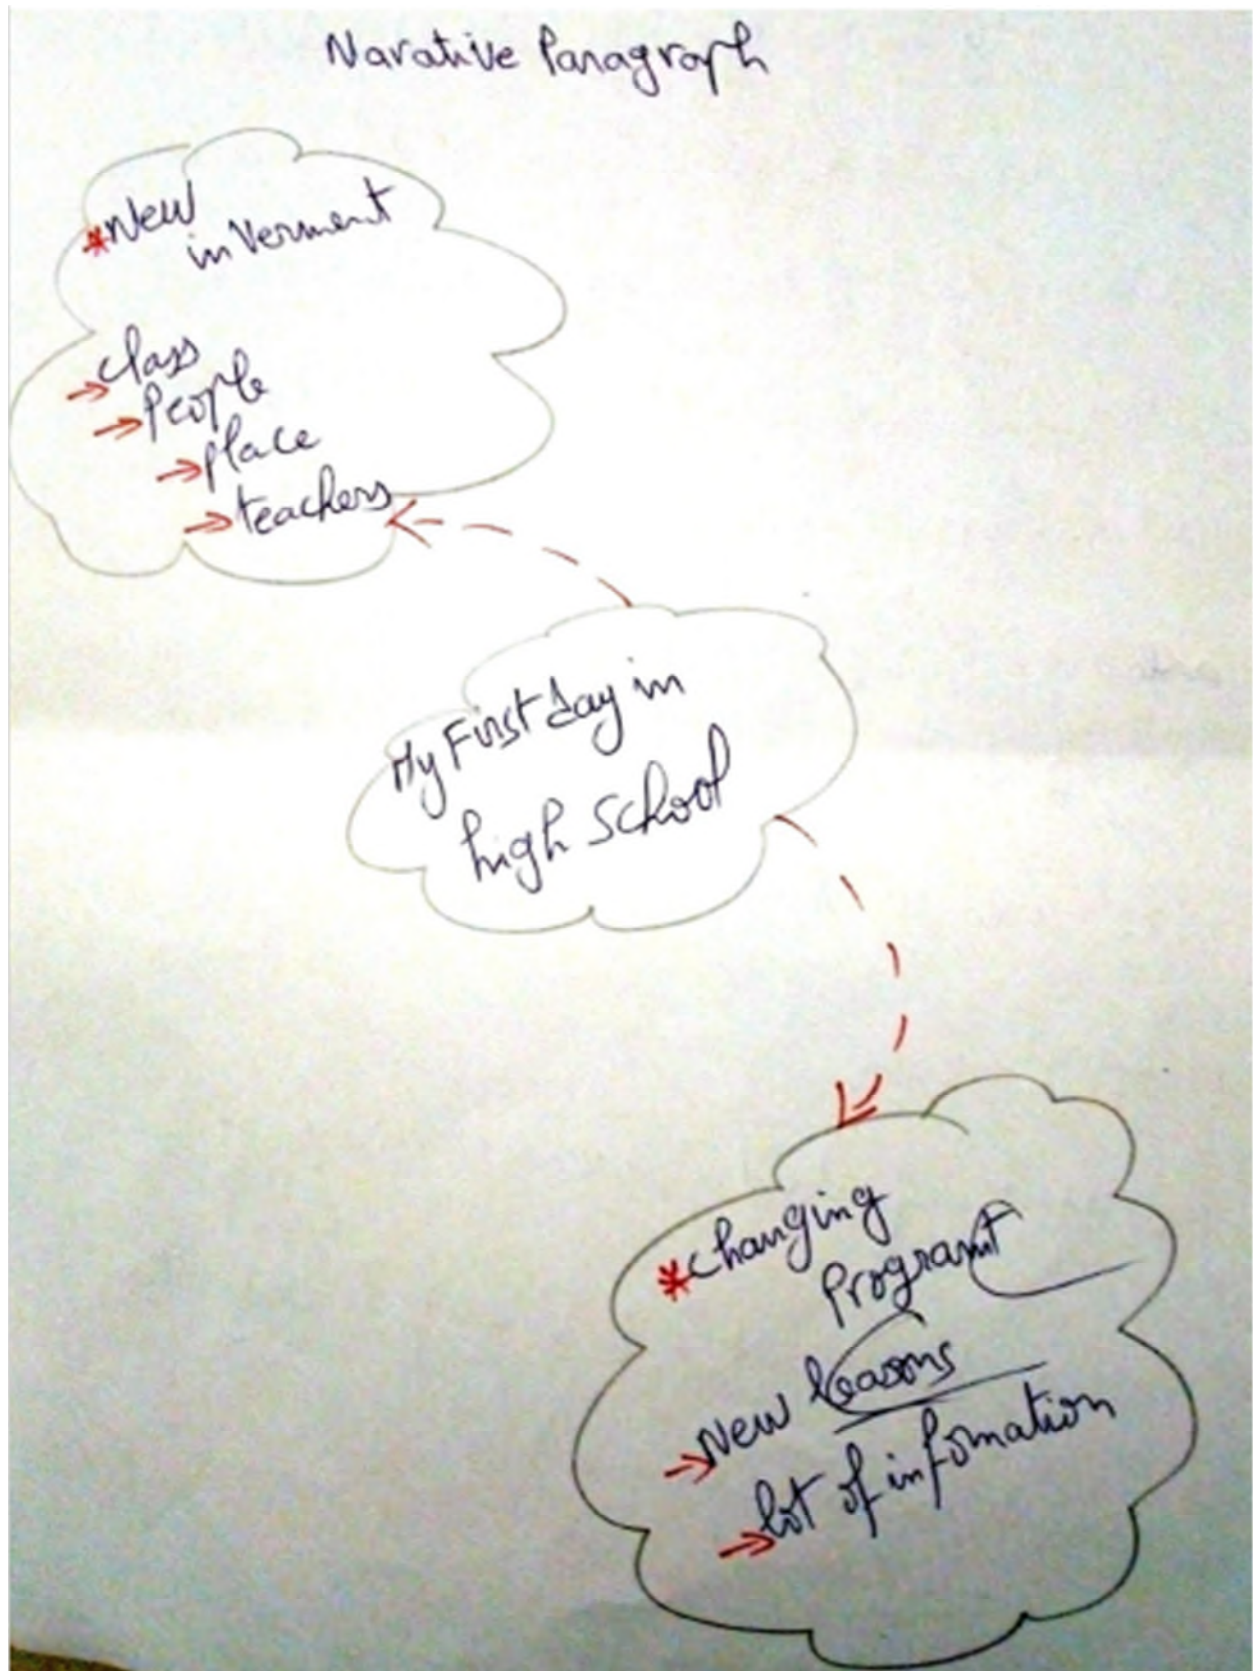 Narative Paragraph
*New
inverment
→class
→People
→place
→teachers
My First day in
high School
*changing
Programt
→New leasons
→lot of infomation